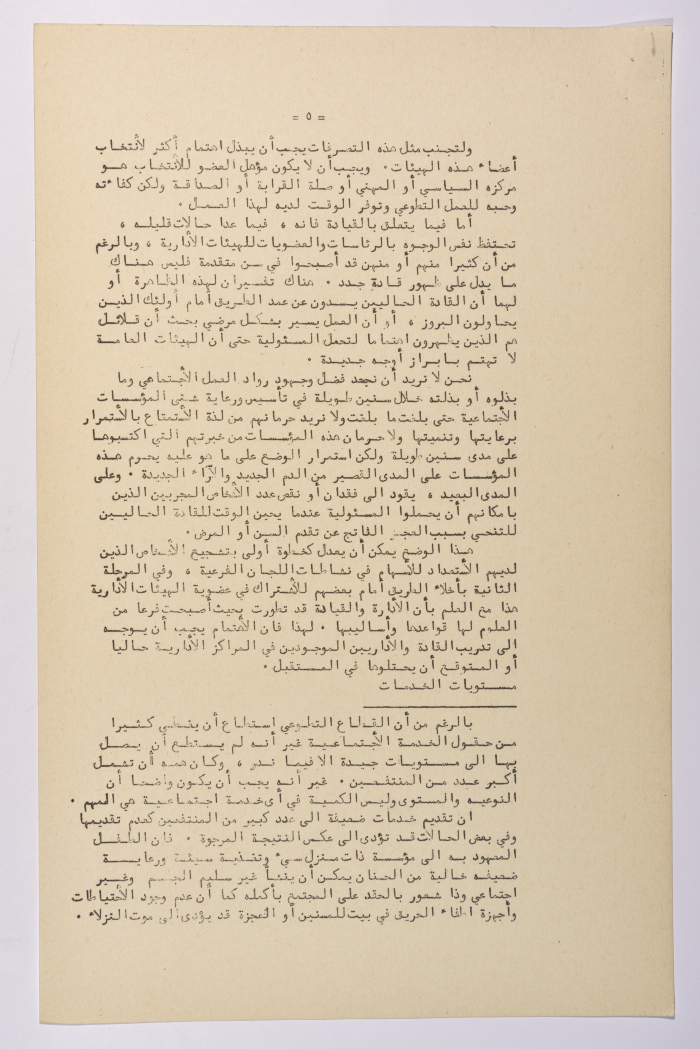 = ٥ =
ولتجنب مثل هذه التصرفات يجب أن يبذل اهتمام أكثر لأنتخاب
أعضاء هذه الهيئات . ويجب أن لا يكون مؤهل العضو للأنتخاب هو
مركزه السياسي أو المهني أو صلة القرابة أو الصداقة ولكن كفاءته
وحبه للعمل التطوعي وتوفر الوقت لديه لهذا العمل .
أما فيما يتعلق بالقيادة فانه ، فيما عدا حالات قليله ،
تحتفظ نفس الوجوه بالرئاسات والعضويات للهيئات الأدارية ، وبالرغم
من أن كثيرا منهم أو منهن قد أصبحوا في سن متقدمة فليس هناك
ما يدل على ظهور قادة جدد . هناك تفسيران لهذه الظاهرة أو
لهما أن القادة الحاليين يسدون عن عمد الطريق أمام أولئك الذين
يحاولون البروز ، أو أن العمل يسير بشكل مرضي بحث أن قلائل
هم الذين يظهرون اهتماما لتحمل المسئولية حتى أن الهيئات العامة
لا تهتم بابراز أوجه جديدة .
نحن لا نريد أن نجحد فضل وجهود رواد العمل الأجتماعي وما
بذلوه أو بذلته خلال سنين طويلة في تأسيس ورعاية شتى المؤسسات
الأجتماعية حتى بلغت ما بلغت ولا نريد حرمانهم من لذة الأستمتاع بالأستمرار
برعايتها وتنميتها ولا حرمان هذه المؤسسات من خبرتهم التي اكتسبوها
على مدى سنين طويلة ولكن استمرار الوضع على ما هو عليه يحرم هذه
المؤسسات على المدى القصير من الدم الجديد والآراء الجديدة . وعلى
المدى البعيد ، يقود الى فقدان أو نقص عدد الأشخاص المجربين الذين
بامكانهم أن يحملوا المسئولية عندما يحين الوقت للقادة الحاليين
للتنحي بسبب العجز الناتج عن تقدم السن أو المرض .
هذا الوضع يمكن أن يعدل كخطوة أولى بتشجيع الأشخاص الذين
لديهم الأستعداد للأسهام في نشاطات اللجان الفرعية ، وفي المرحلة
الثانية بأخلاء الطريق أمام بعضهم للأشتراك في عضوية الهيئات الأدارية
هذا مع العلم بأن الأدارة والقيادة قد تطورت بحيث أصبحت فرعا من
العلوم لها قواعدها وأساليبها . لهذا فان الأهتمام يجب أن يوجه
الى تدريب القادة والأداريين الموجودين في المراكز الأدارية حاليا
أو المتوقع أن يحتلوها في المستقبل .
مستويات الخدمات
بالرغم من أن القطاع التطوعي استطاع أن يغطي كثيرا
من حقول الخدمة الأجتماعية غير أنه لم يستطع أن يصل
بها الى مستويات جيدة الا فيما ندر ، وكان همه أن تشمل
أكبر عدد من المنتفعين . غير أنه يجب أن يكون واضحا أن
النوعيه والمستوى وليس الكمية في أي خدمة اجتماعية هي المهم .
ان تقديم خدمات ضعيفة الى عدد كبير من المنتفعين كعدم تقديمها
وفي بعض الحالات قد تؤدى الى عكس النتيجة المرجوة . فان الطفل
المعهود به الى مؤسسة ذات منزل سيء وتغذية سيئة ورعاية
ضعيفه خالية من الحنان يمكن أن ينشأ غير سليم الجسم وغير
اجتماعي وذا شعور بالحقد على المجتمع بأكمله كما أن عدم وجود الأحتياطات
وأجهزة اطفاء الحريق في بيت للمسنين أو العجزة قد يؤدى الى موت النزلاء .